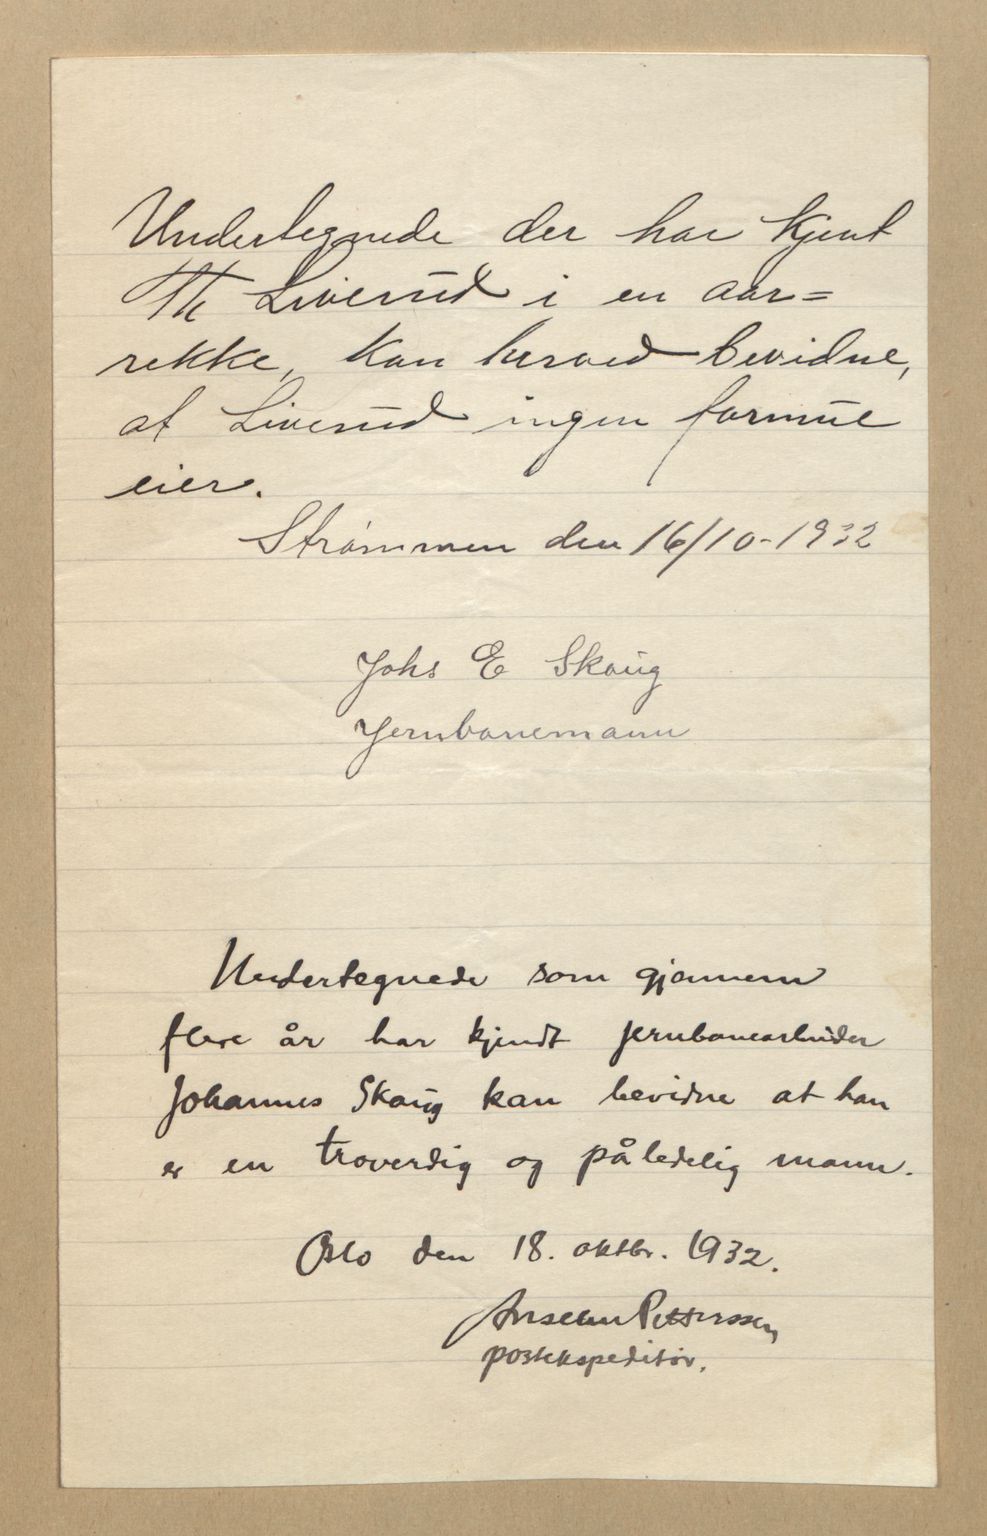 Undertegnede der har kjent
Th Liverud i en aar=
rekke, kan herved bevidne,
at Liverud ingen formue
eier.
Strømmen den 16/10-1932
Johs E Skaug
Jernbanemann
Undertegnede som gjennem
flere år har kjendt jernbanearbeider
Johannes Skaug kan bevidne at han
er en troverdig og påledelig mann.
Oslo den 18. oktbr. 1932.
Anselm Pettersson
postekspeditør.